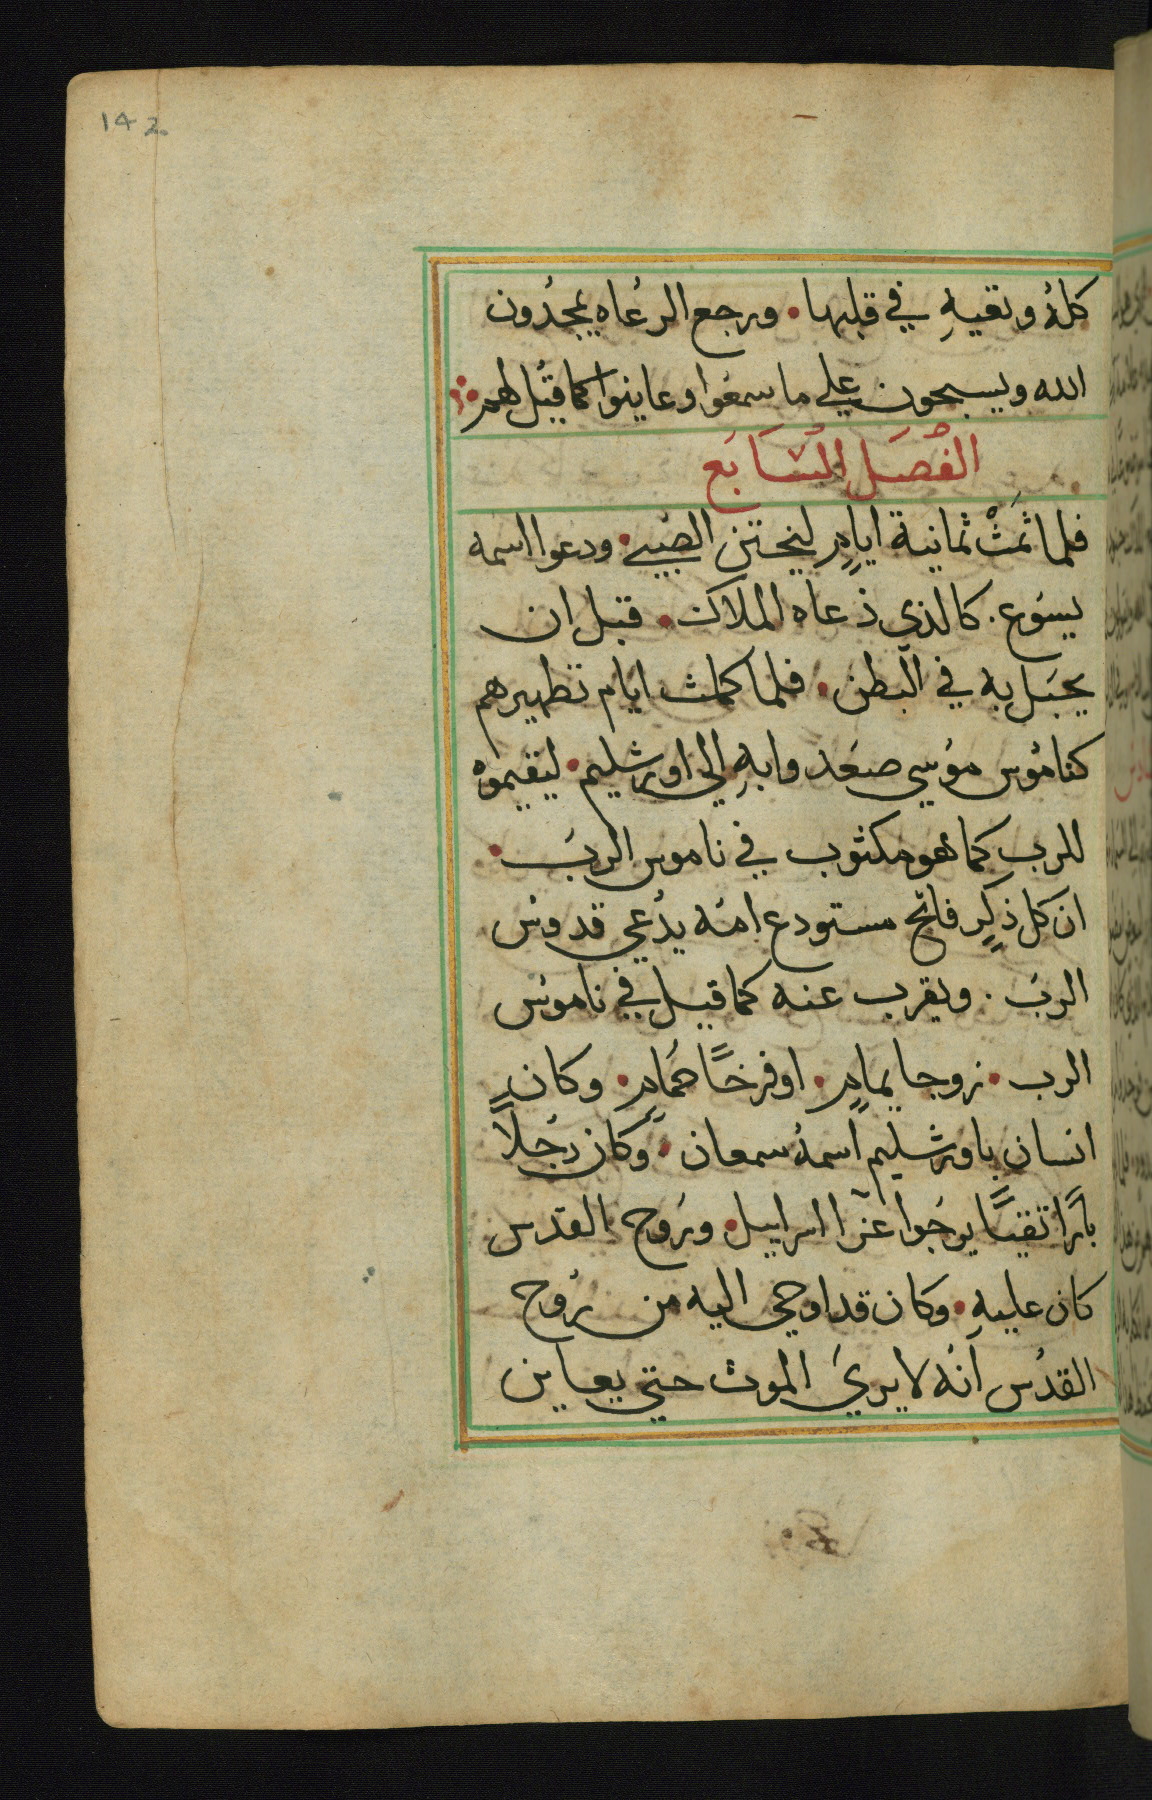 142
كلهُ وتقيهِ في قلبها • ورجع الرعاه يمجدون
الله ويسبحون علي ما سمعوا وعاينوا كما قيل لهم
الفصل السابع
فلما تمتْ ثمانية ايامٍ ليختتن الصبي • ودعوا اسمه
يسوع . كالذي دعاه الملاك • قبل ان
يحبل به في البطن • فلما كملت ايام تطهيرهم
كناموس موسي صعد وا بهِ الي اورشليم • ليقيموه
للرب كما هو مكتوب في ناموس الرب •
ان كل ذكرٍ فاتح مستودع امه يدعي قدوس
الرب . ويقرب عنه كما قيل في ناموس
الرب • زوجا يمامٍ • او فرخاً حمامٍ • وكان
انسان باورشليم اسمهُ سمعان • وكان رجلاً
باراً تقيـاً يرجوا عزا اسراييل • وروح القدس
كان عليهِ • وكان قد اوحي اليه من روح
القدس انه لا يري الموت حتي يعاين